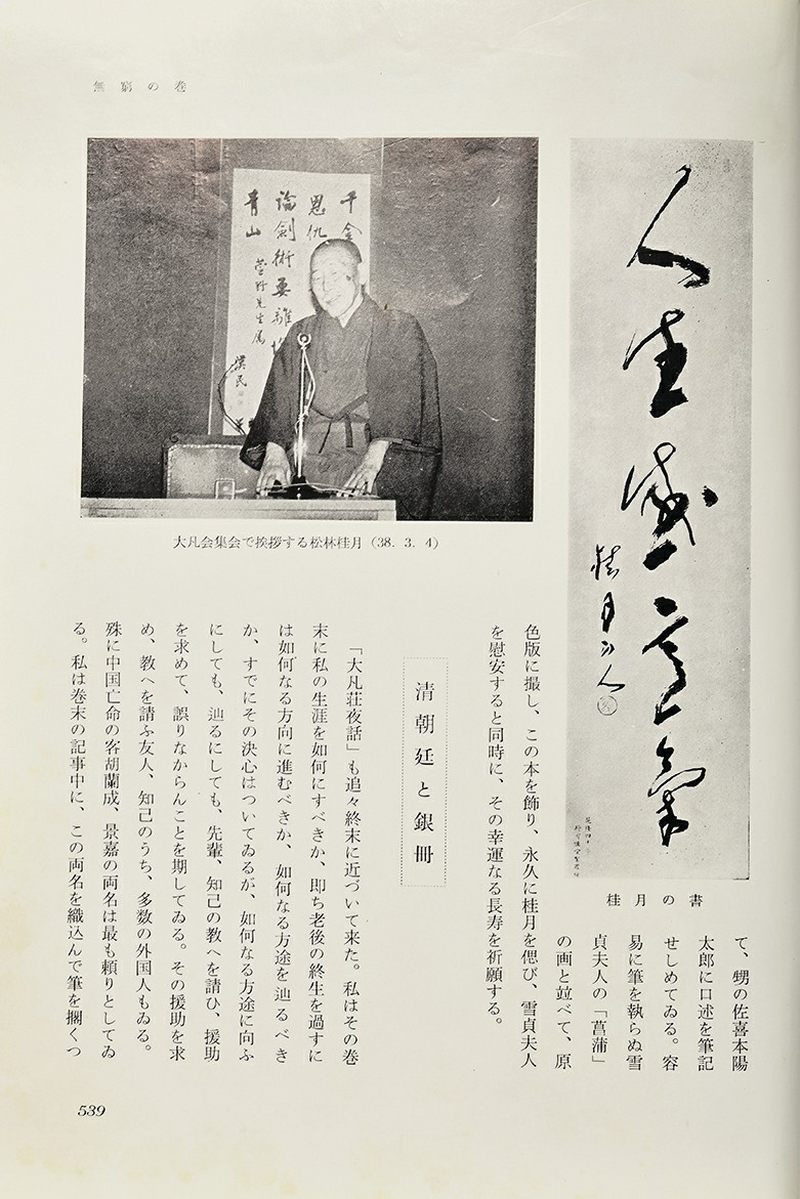 無窮の巻
人生感意気
桂月山人
桂月の書
千金
恩仇
論剣術要離
青山
萱野先生属
漢民
大凡会集会で挨拶する松林桂月（38．3．4）
て、甥の佐喜本陽
太郎に口述を筆記
せしめてゐる。容
易に筆を執らぬ雪
貞夫人の「菖蒲」
の画と竝べて、原
色版に撮し、この本を飾り、永久に桂月を偲び、雪貞夫人
を慰安すると同時に、その幸運なる長寿を祈願する。
清朝廷と銀冊
「大凡荘夜話」も追々終末に近づいて来た。私はその巻
末に私の生涯を如何にすべきか、即ち老後の終生を過すに
は如何なる方向に進むべきか、如何なる方途を辿るべき
か、すでにその決心はついてゐるが、如何なる方途に向ふ
にしても、辿るにしても、先輩、知己の教へを請ひ、援助
を求めて、誤りなからんことを期してゐる。その援助を求
め、教へを請ふ友人、知己のうち、多数の外国人もゐる。
殊に中国亡命の客胡蘭成、景嘉の両名は最も頼りとしてゐ
る。私は巻末の記事中に、この両名を織込んで筆を擱くつ
539